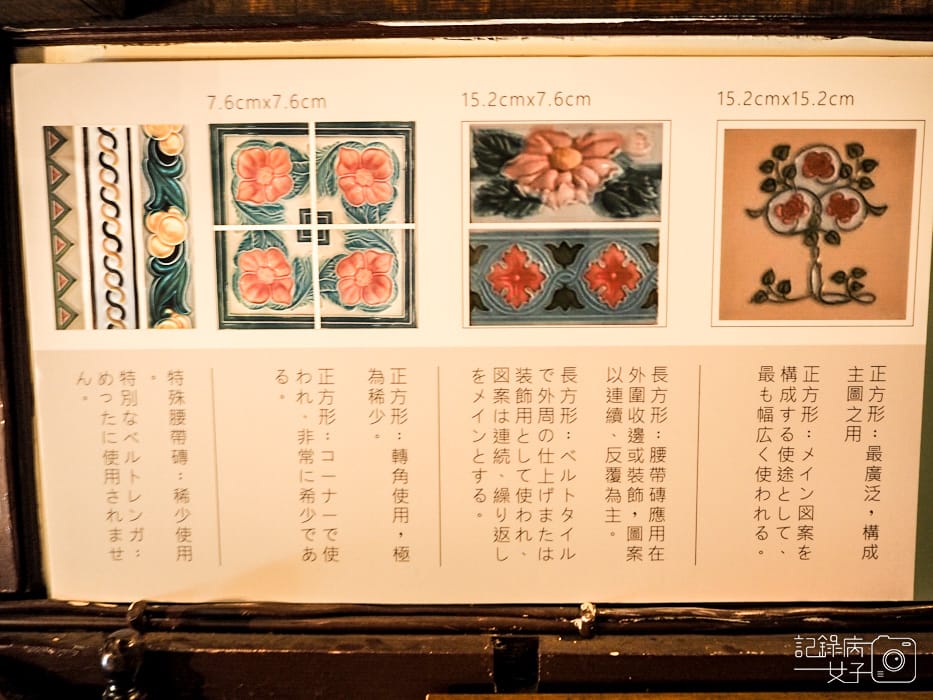 7.6cmx7.6cm
15.2cmx7.6cm
15.2cmx15.2cm
正方形：最廣泛，構成
主圖之用
正方形：メイン図案を
構成する使途として、
最も幅広く使われる。
長方形：腰帶磚應用在
外圍收邊或裝飾，圖案
以連續、反覆為主。
長方形：ベルトタイル
で外周の仕上げまたは
装飾用として使われ、
図案は連続、繰り返し
をメインとする。
正方形：轉角使用，極
為稀少。
正方形：コーナーで使
われ、非常に希少であ
る。
特殊腰帶磚：稀少使用
。
特別なベルトレンガ：
めったに使用されませ
ん。
記錄病
一女子